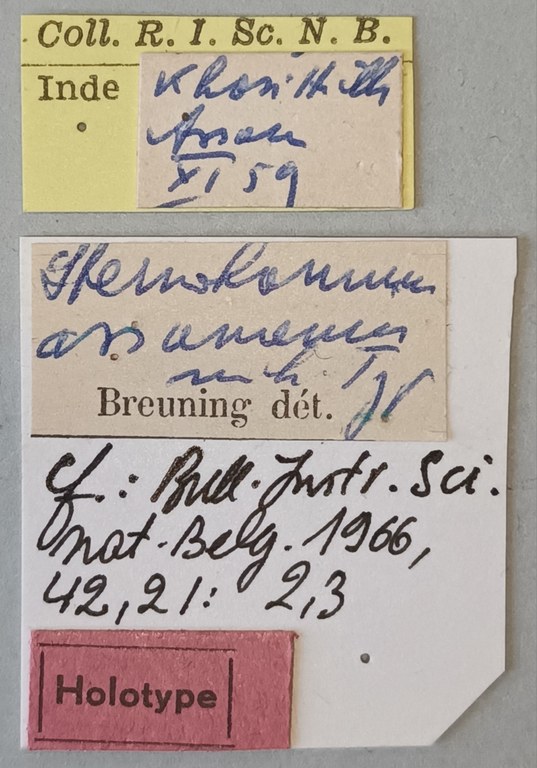 Coll. R. I. Sc. N. B.
Inde
Khasi Hills
Assam
XI 59
Stenohomus
assamensis
mihi Typ
Breuning dét.
cf.: Bull. Instr. Sci.
nat. Belg. 1966,
42, 21: 2,3
Holotype